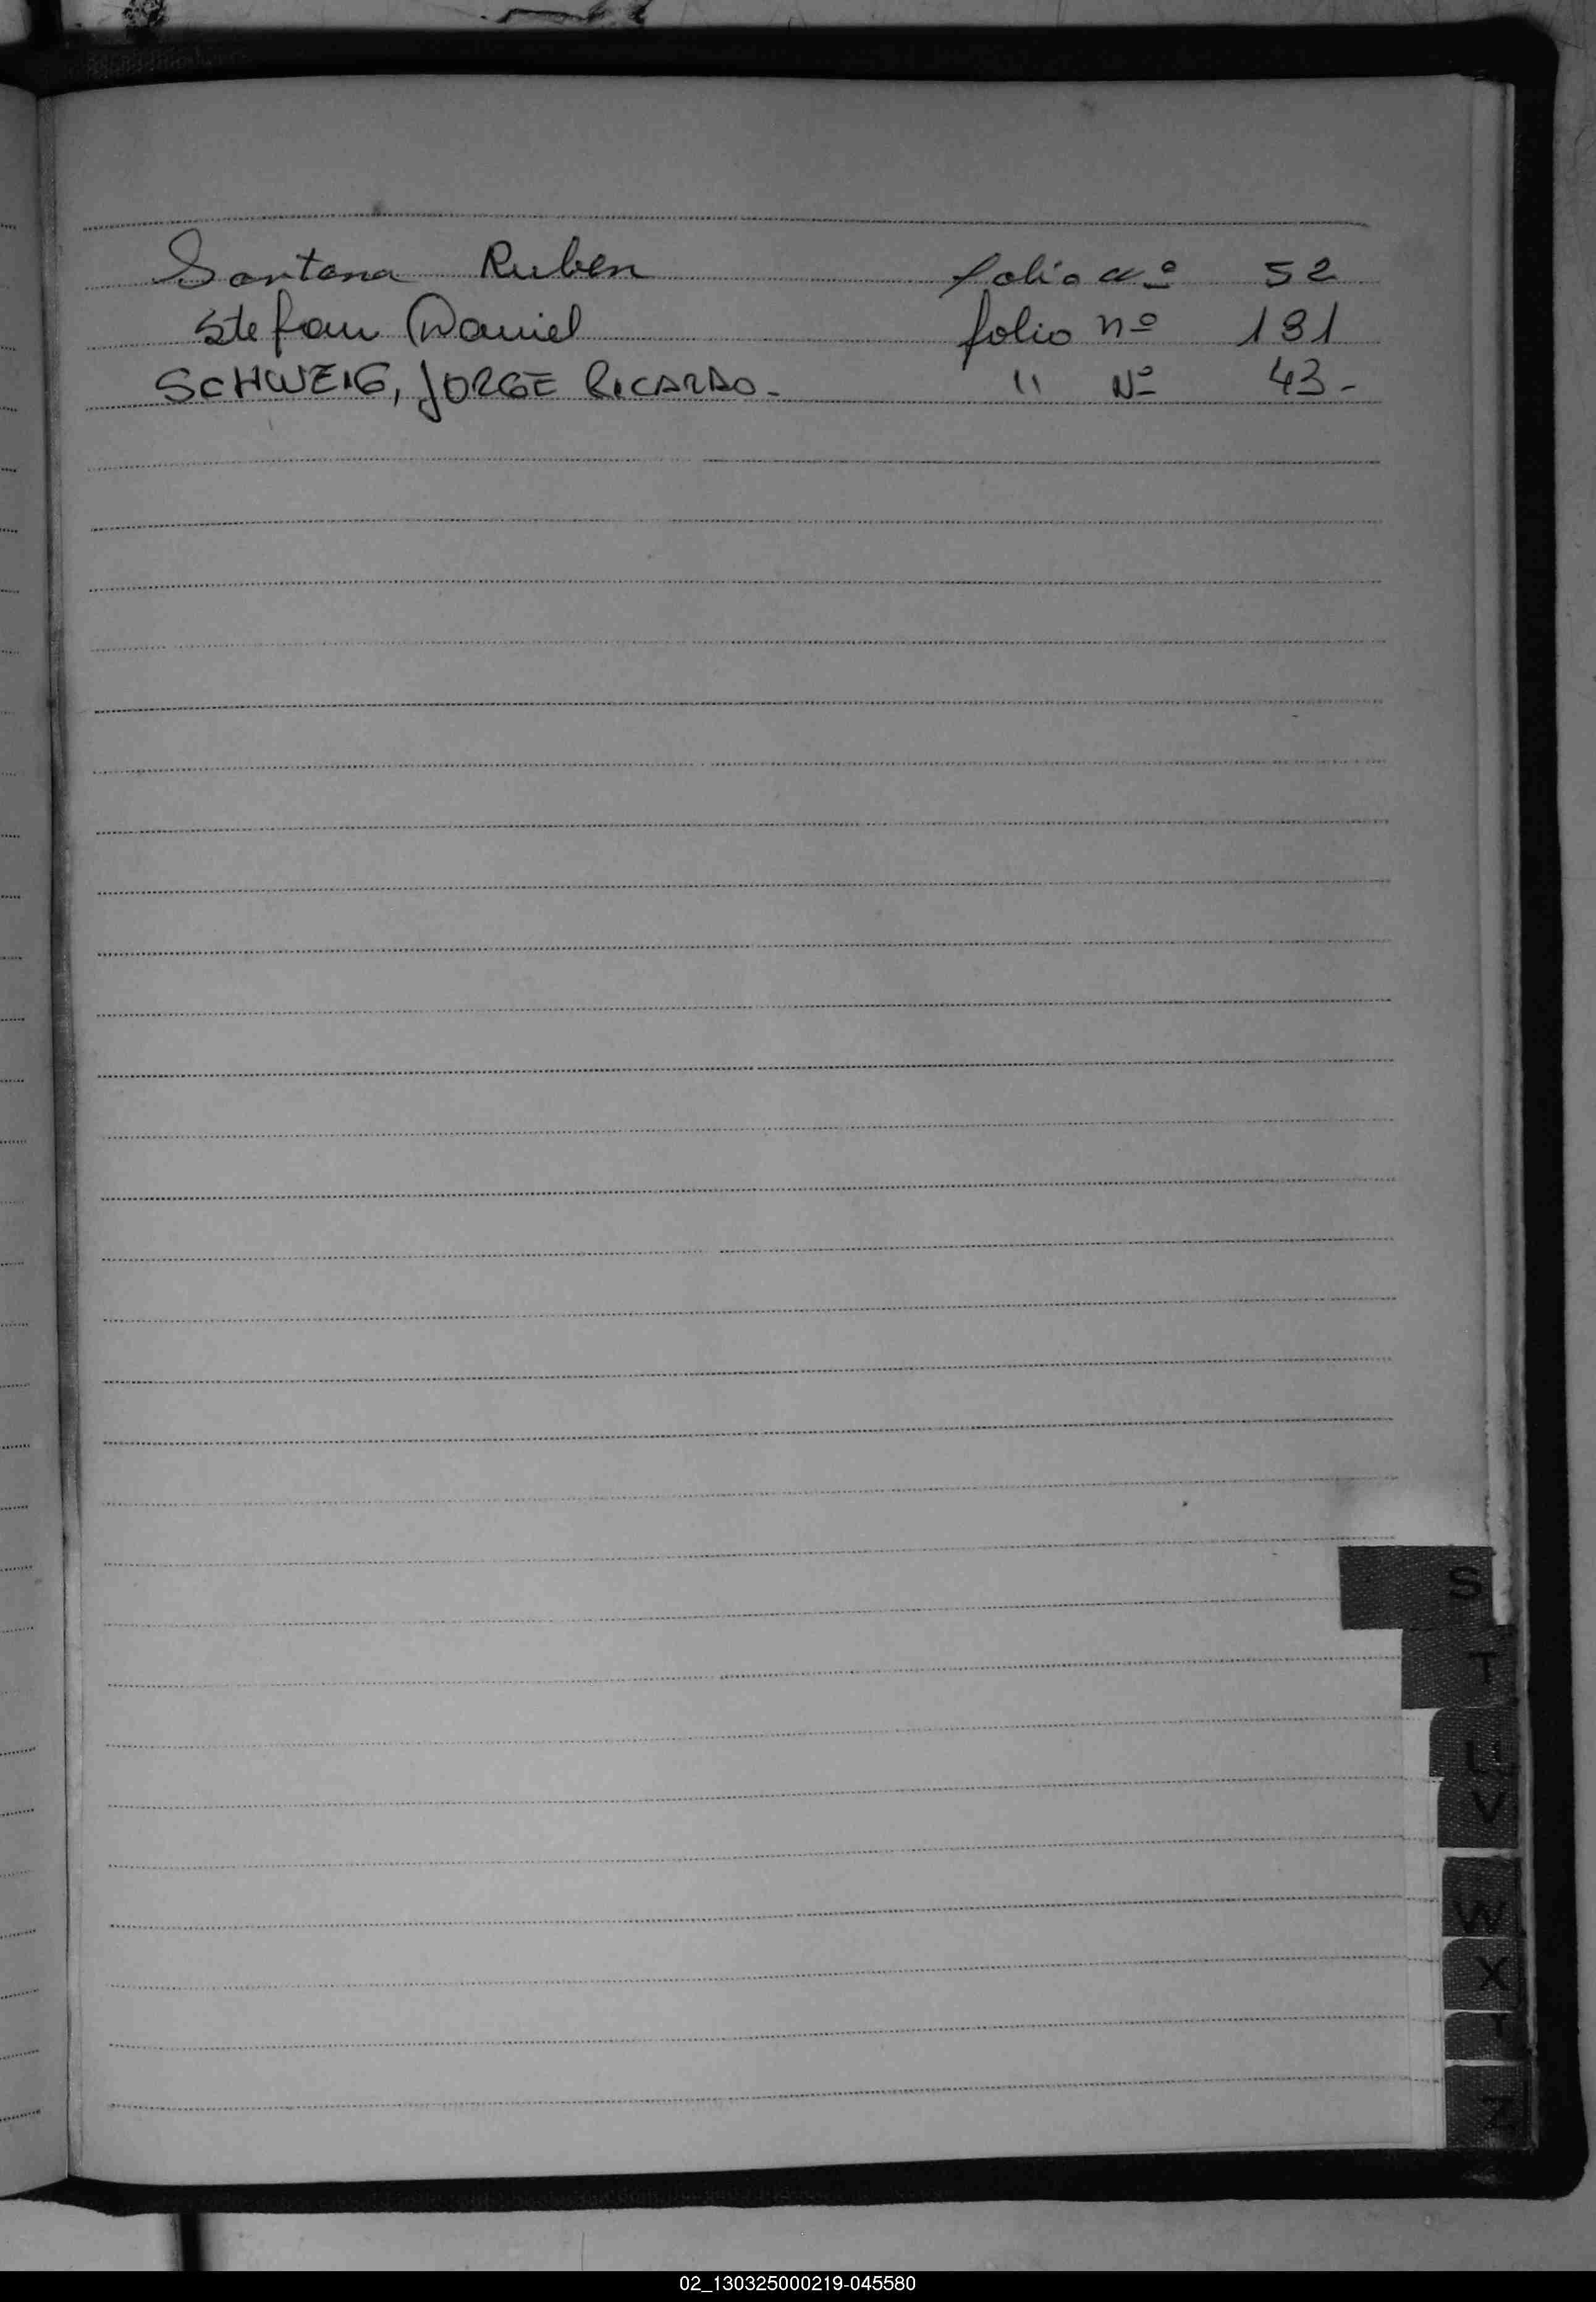 Santana Ruben folio nº 52
Stefan Daniel folio nº 131
SCHWEIG, JORGE RICARDO. " Nº 43-
S
T
U
V
W
X
Z
02_130325000219-045580